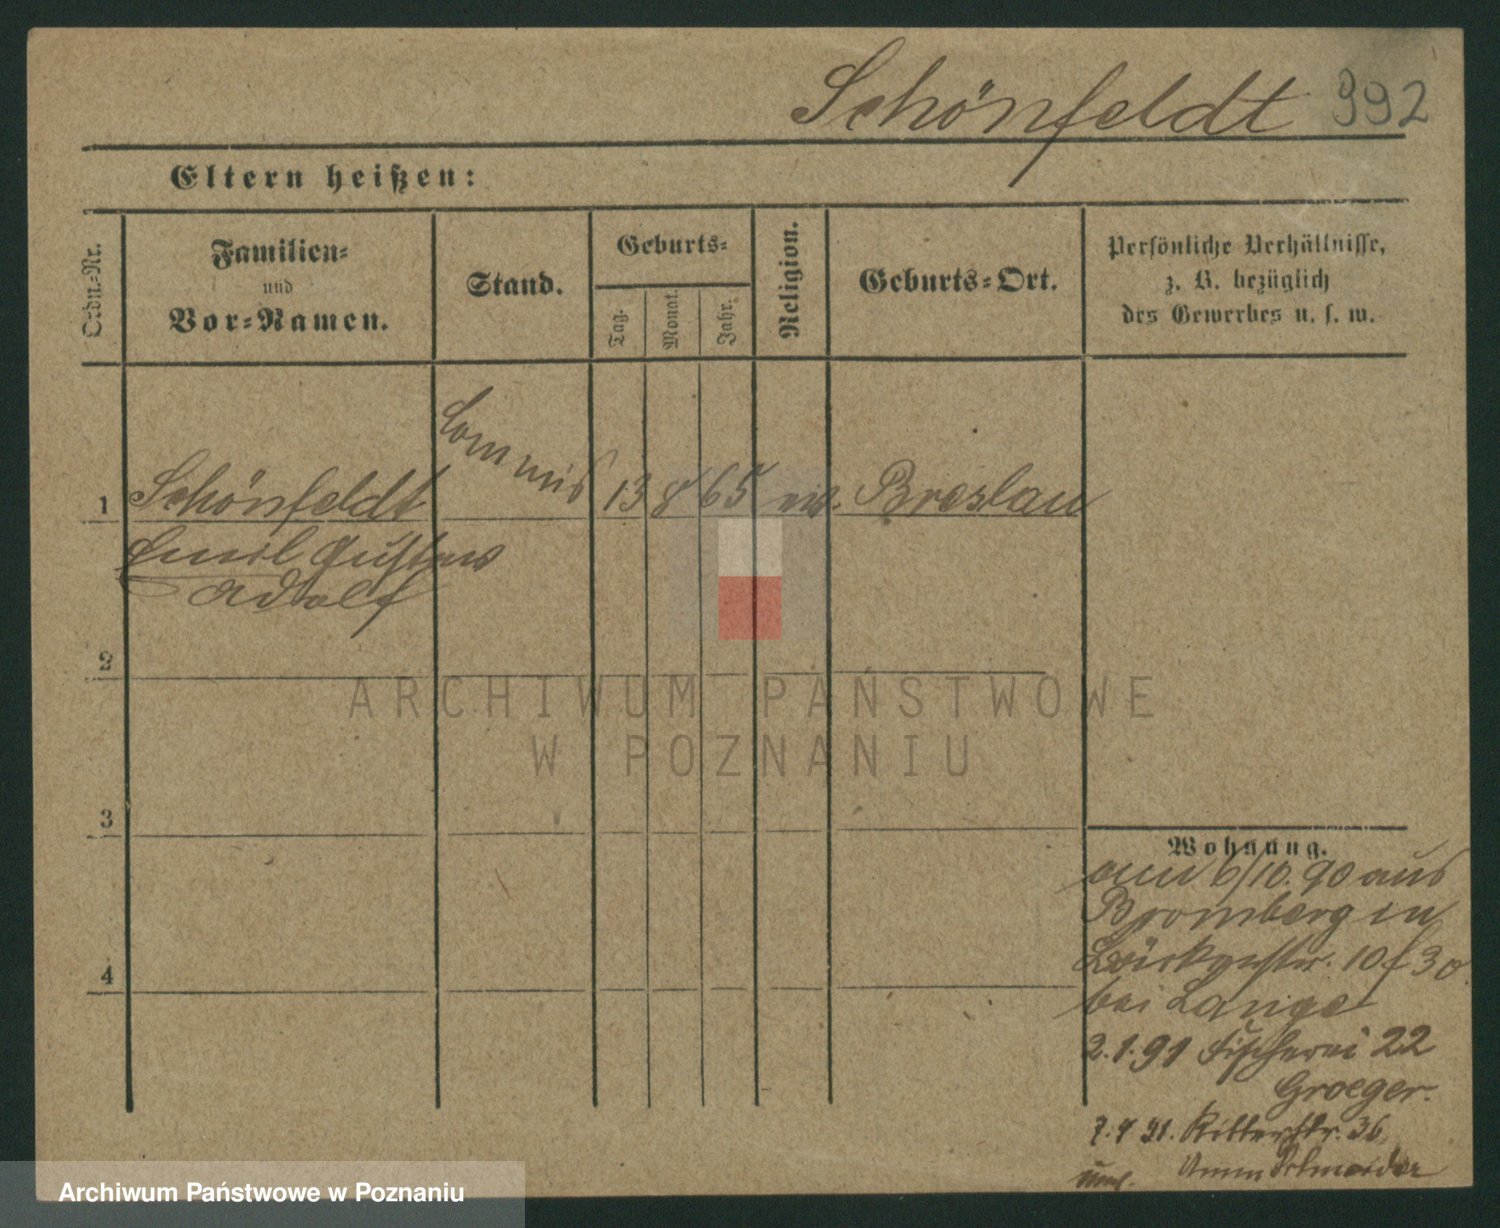 Schönfeldt 392
Eltern heißen:
Ordn.-Nr.
Familien-
und
Vor-Namen.
Stand.
Geburts-
Tag.
Monat.
Jahr.
Religion.
Geburts-Ort.
Persönliche Verhältnisse,
z. B. bezüglich
des Gewerbes u. s. w.
Commis
1 Schönfeldt 13 8 65 Breslau
Emil Gustav
Adolf
2
3
4
Wohnung.
am 6/10. 90 aus
Bromberg in
10
bei Lange
2.1.91 Fischerei 22
Groeger.
7.4 91. Ritterstr. 36
ARCHIWUM PAŃSTWOWE
W POZNANIU
Archiwum Państwowe w Poznaniu